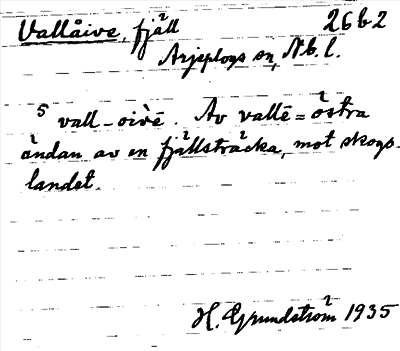 Vallåive, fjäll 26b2
Arjeplogs sn, Nb. l.
5 vall-oivē. Av vallē = östra
ändan av en fjällsträcka, mot skogs-
landet.
H. Grundström 1935